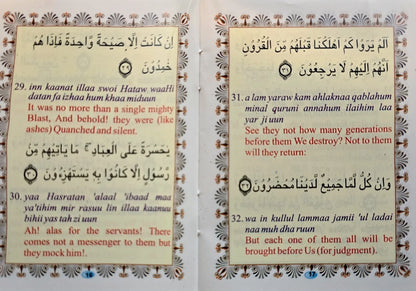 اِنْ كَانَتْ اِلَّا صَيْحَةً وَّاحِدَةً فَاِذَا هُمْ
خٰمِدُوْنَ ﴿۲۹﴾
29. inn kaanat illaa swoi Hataw waaHi
datan fa izhaa hum khaa miduun
It was no more than a single mighty
Blast, And behold! they were (like
ashes) Quanched and silent.
يٰحَسْرَةً عَلَى الْعِبَادِ ۚ مَا يَاْتِيْهِمْ مِّنْ
رَّسُوْلٍ اِلَّا كَانُوْا بِهٖ يَسْتَهْزِءُوْنَ ﴿۳۰﴾
30. yaa Hasratan 'alaal 'ibaad maa
ya'tihim mir rasuu lin illaa kaanuu
bihii yas tah zii uun
Ah! alas for the servants! There
comes not a messenger to them but
they mock him!.
16
اَلَمْ يَرَوْا كَمْ اَهْلَكْنَا قَبْلَهُمْ مِّنَ الْقُرُوْنِ
اَنَّهُمْ اِلَيْهِمْ لَا يَرْجِعُوْنَ ﴿۳۱﴾
31. a lam yaraw kam ahlaknaa qablahum
minal quruni annahum ilaihim laa
yar ji uun
See they not how many generations
before them We destroy? Not to them
will they return:
وَاِنْ كُلٌّ لَّمَّا جَمِيْعٌ لَّدَيْنَا مُحْضَرُوْنَ ﴿۳۲﴾
32. wa in kullul lammaa jamii 'ul ladai
naa muh dha ruun
But each one of them all will be
brought before Us (for judgment).
17